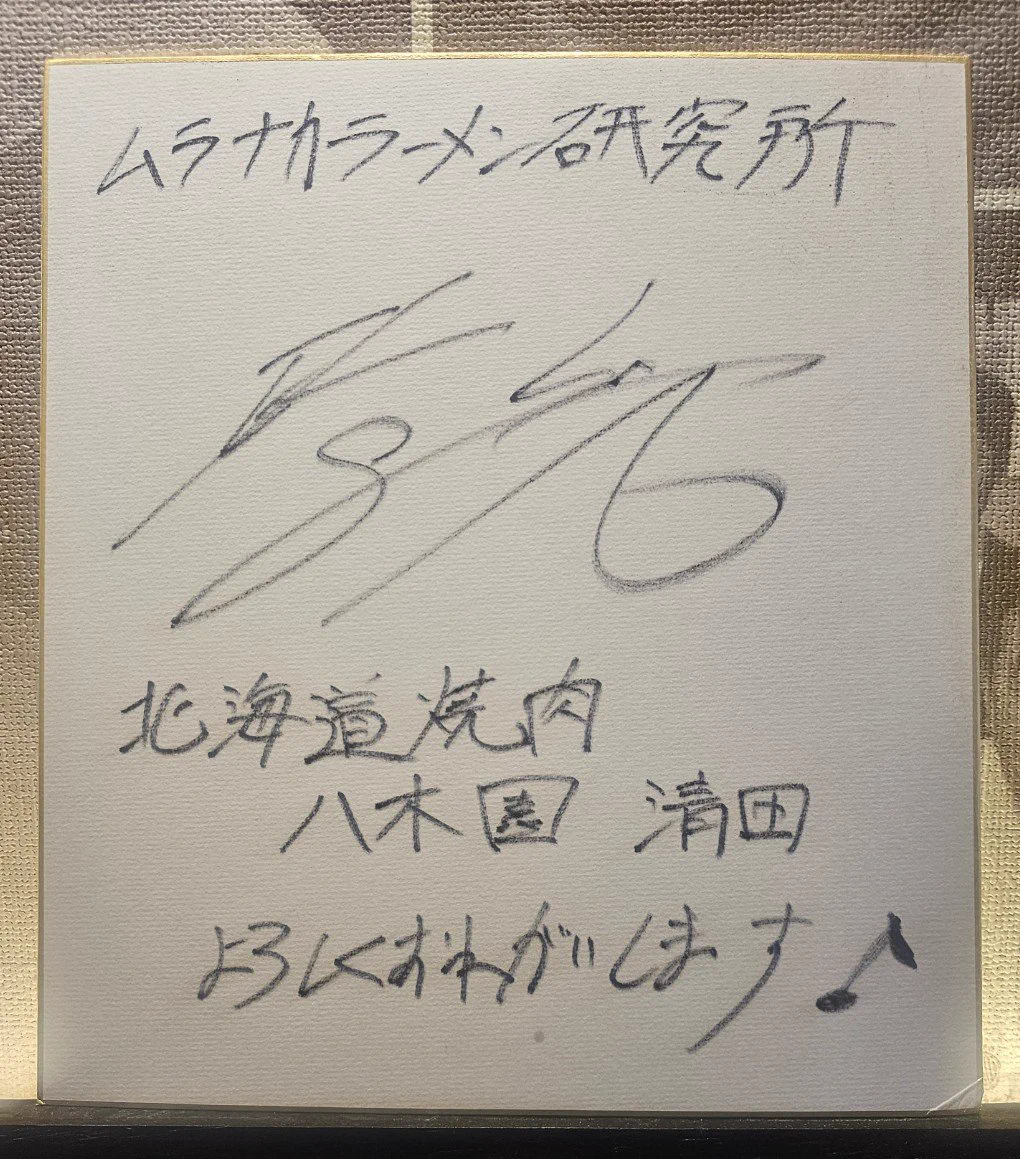 ムラナカラーメン研究所
北海道焼肉
八木園 清田
よろしくおねがいします♪